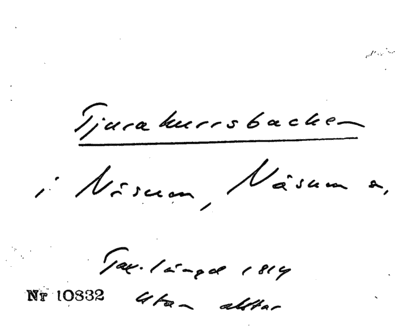 Tjurakurrsbacken
i Näsum, Näsum s,
Tax. längd 1819
Nr 10832 utan akter